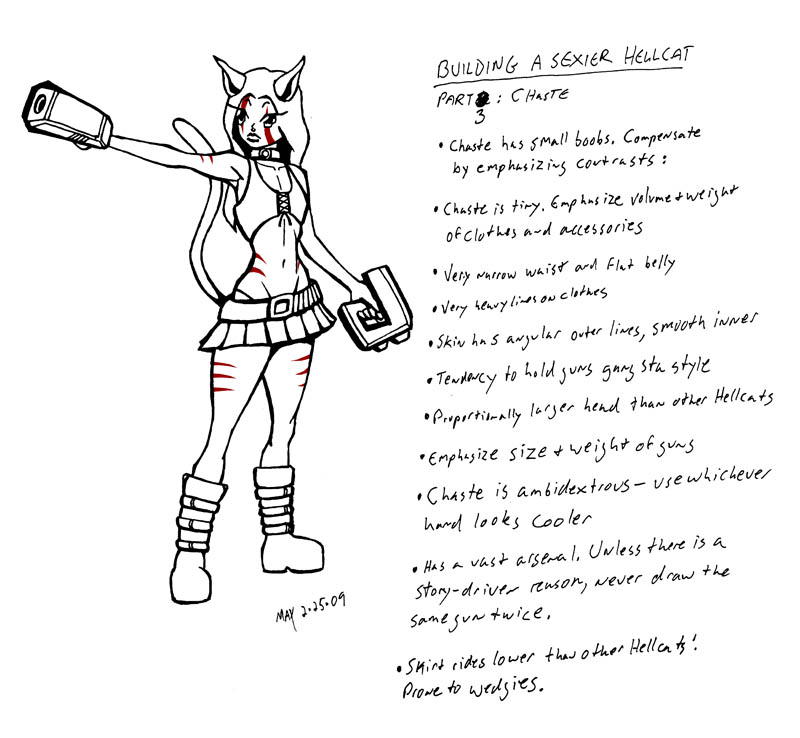 BUILDING A SEXIER HELLCAT
PART 3: CHASTE
• Chaste has small boobs. Compensate
by emphasizing contrasts:
• Chaste is tiny. Emphasize volume + weight
of clothes and accessories
• Very narrow waist and flat belly
• Very heavy lines on clothes
• Skin has angular outer lines, smooth inner
• Tendency to hold guns gangsta style
• Proportionally larger head than other Hellcats
• Emphasize size + weight of guns
• Chaste is ambidextrous – use whichever
hand looks cooler
• Has a vast arsenal. Unless there is a
story-driven reason, never draw the
same gun twice.
• Skirt rides lower than other Hellcats'.
Prone to wedgies.
MAX 2.25.09